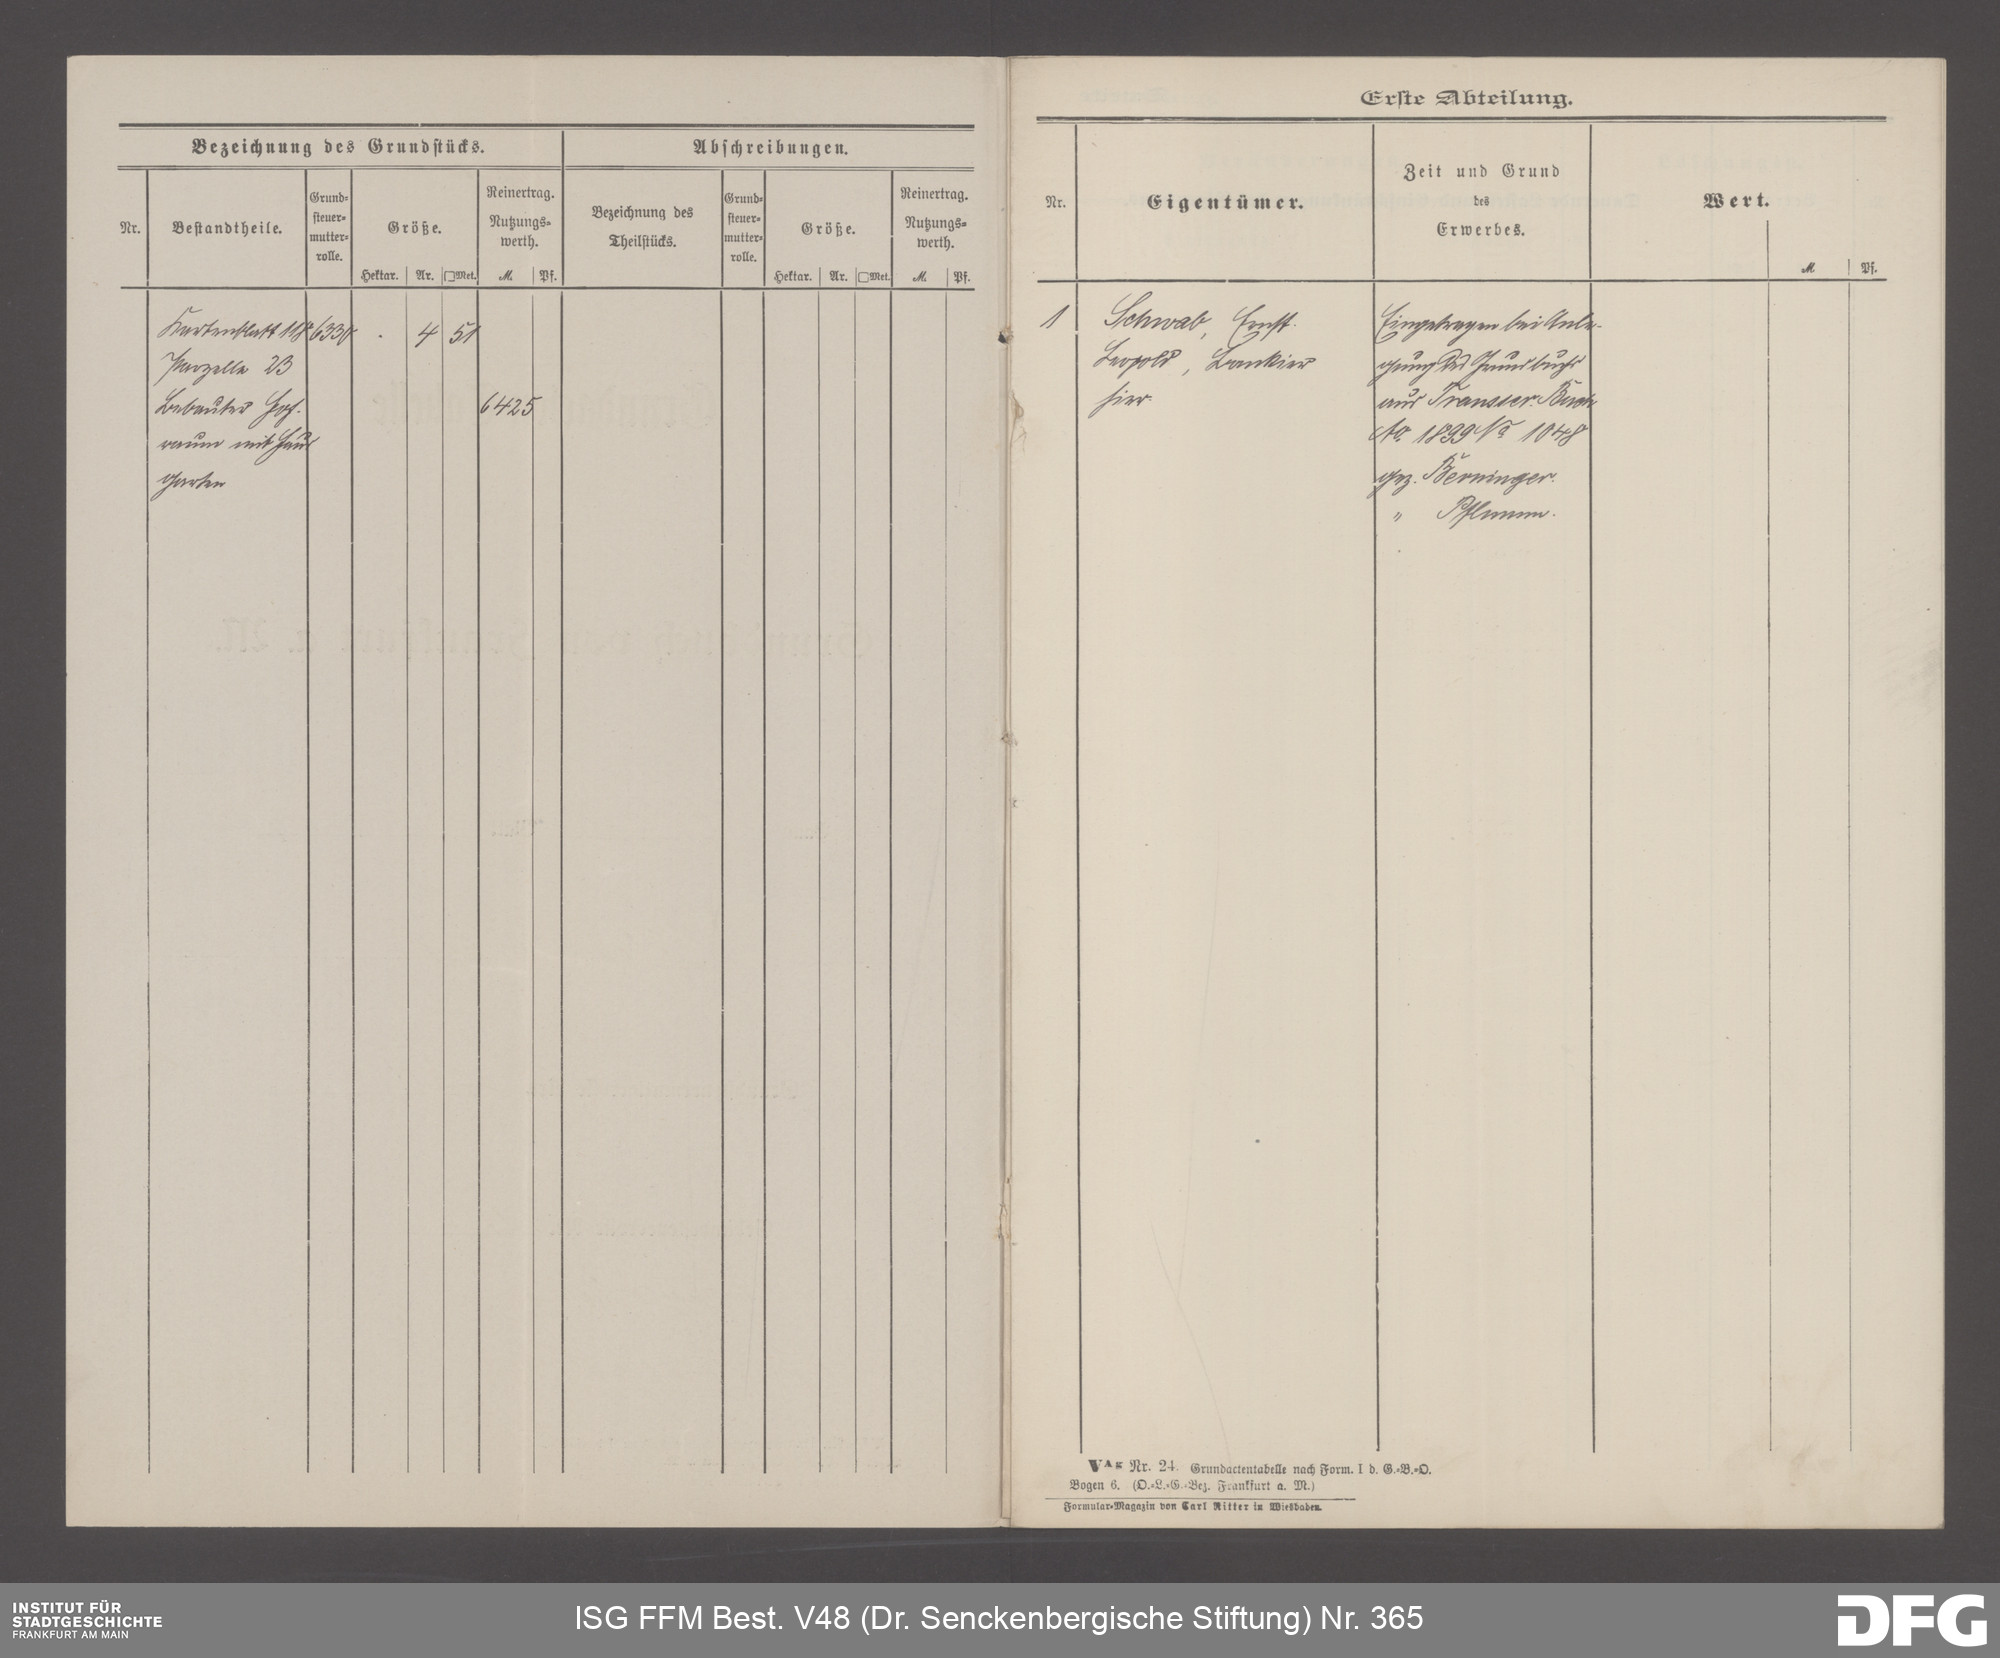 Bezeichnung des Grundstücks.
Abschreibungen.
Nr.
Bestandtheile.
Grund-
steuer-
mutter-
rolle.
Größe.
Hektar. Ar. □Met.
Reinertrag.
Nutzungs-
werth.
M. Pf.
Bezeichnung des
Theilstücks.
Grund-
steuer-
mutter-
rolle.
Größe.
Hektar. Ar. □Met.
Reinertrag.
Nutzungs-
werth.
M. Pf.
Kartenblatt 118 6330 . 4 51
Parzelle 23
Bebauter Hof- 6425
raum mit Haus
garten
Erste Abteilung.
Nr.
Eigentümer.
Zeit und Grund
des
Erwerbes.
Wert.
M Pf.
1 Schwab, Ernst
Leopold, Bankier
hier.
Eingetragen bei Anle-
gung des Grundbuchs
aus Transscr. Buch
Ao. 1899 No 1048
gez. Berninger.
" Pflumm.
VAK Nr. 24. Grundactentabelle nach Form. I d. G.-B.-O.
Bogen 6. (O.-L.-G.-Bez. Frankfurt a. M.)
Formular-Magazin von Carl Ritter in Wiesbaden.
INSTITUT FÜR
STADTGESCHICHTE
FRANKFURT AM MAIN
ISG FFM Best. V48 (Dr. Senckenbergische Stiftung) Nr. 365
DFG